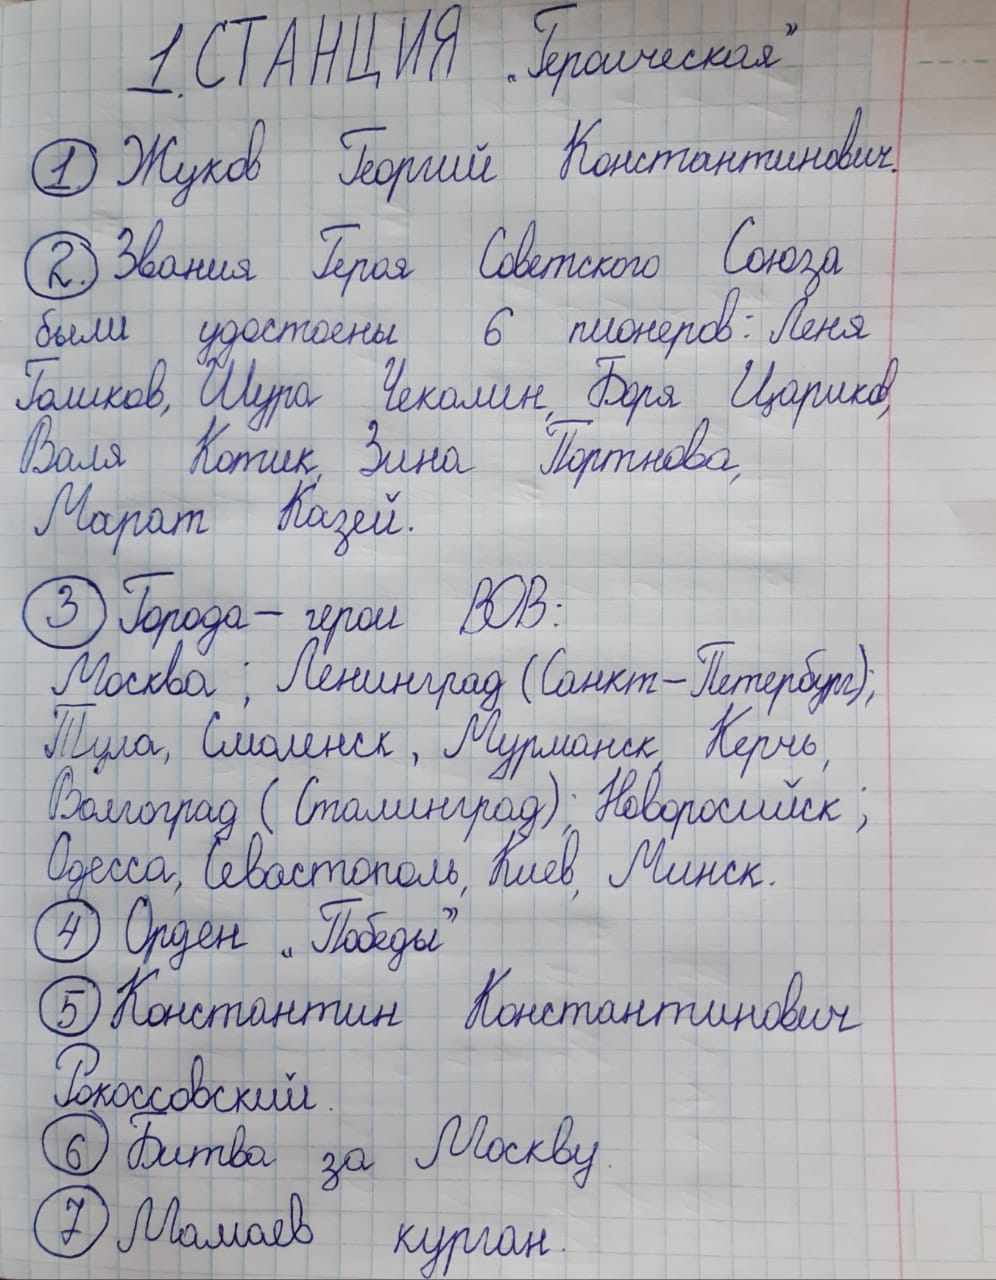 1. СТАНЦИЯ „Героическая”
1. Жуков Георгий Константинович.
2. Звания Героя Советского Союза
были удостоены 6 пионеров: Леня
Голиков, Шура Чекалин, Боря Цариков,
Валя Котик, Зина Портнова,
Марат Казей.
3 Города – герои ВОВ:
Москва ; Ленинград (Санкт-Петербург);
Тула, Смоленск, Мурманск, Керчь,
Волгоград (Сталинград); Новоросийск;
Одесса, Севастополь, Киев, Минск.
4 Орден „Победы”
5 Константин Константинович
Рокоссовский.
6 Битва за Москву.
7 Мамаев курган.